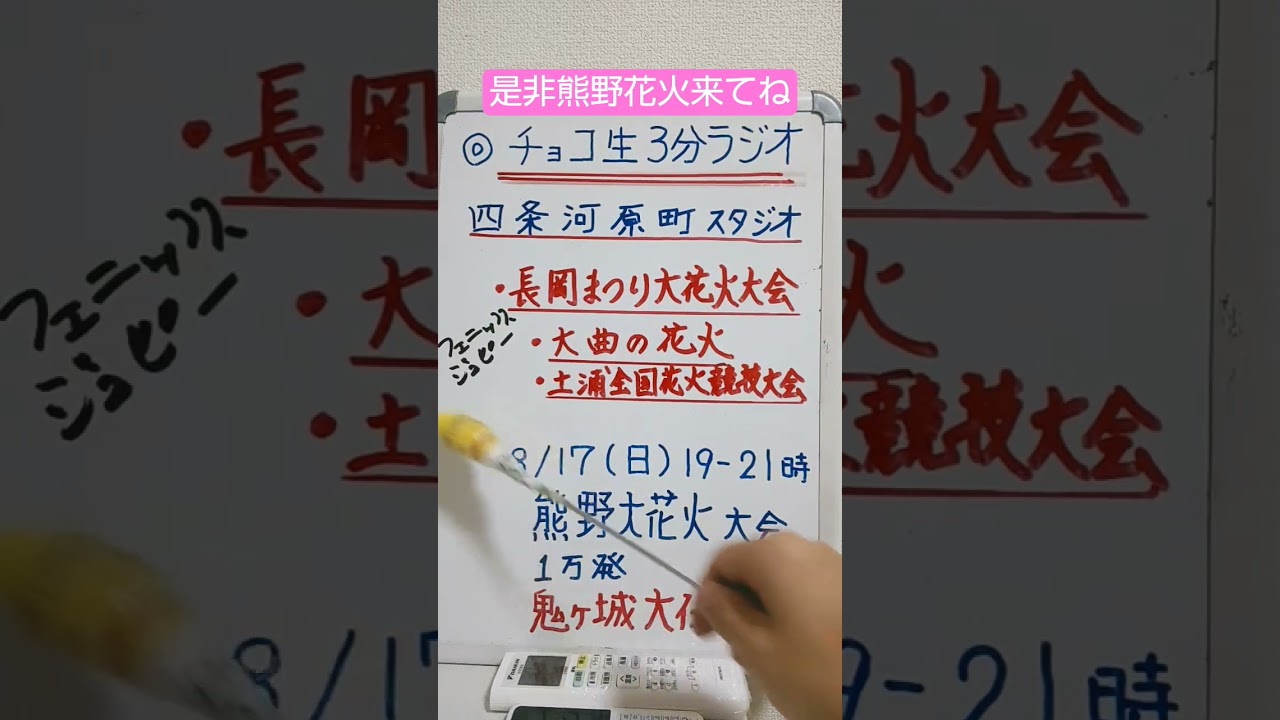 是非熊野花火来てね
◎ チョコ生3分ラジオ
四条河原町スタジオ
・長岡まつり大花火大会
フェニックス
ジョビー
・大曲の花火
・土浦全国花火競技大会
8/17(日)19-21時
熊野大花火大会
1万発
鬼ヶ城大